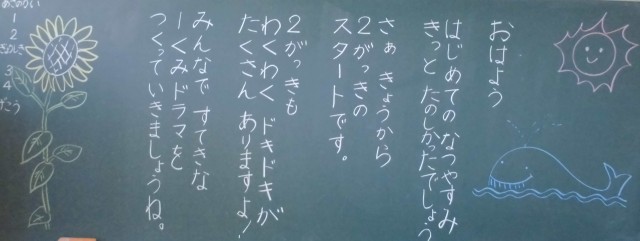 おはよう
はじめてのなつやすみ
きっと たのしかったでしょう
さぁ きょうから
2がっきの
スタートです。
2がっきも
わくわく ドキドキが
たくさん ありますよ!
みんなで すてきな
1くみドラマを
つくっていきましょうね。
1
2
3
4